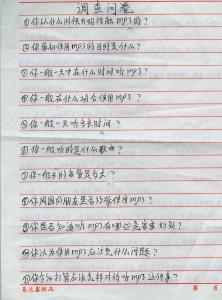 调查问卷
①你从什么时候开始接触mp3的？
②你最初使用mp3的目的是什么？
③你一般一天中在什么时间听mp3？
④你一般在什么场合使用mp3？
⑤你一般一天听多长时间？
⑥你一般听的是什么歌曲？
⑦你一般 的音量是多大？
⑧你周围的朋友是否经常使用mp3？
⑨你是否知道听mp3有哪些危害 ？
⑩你认为使用mp3应注意什么问题？
你今后打算怎样对待听mp3这件事？
易达鑫纸品
第 页